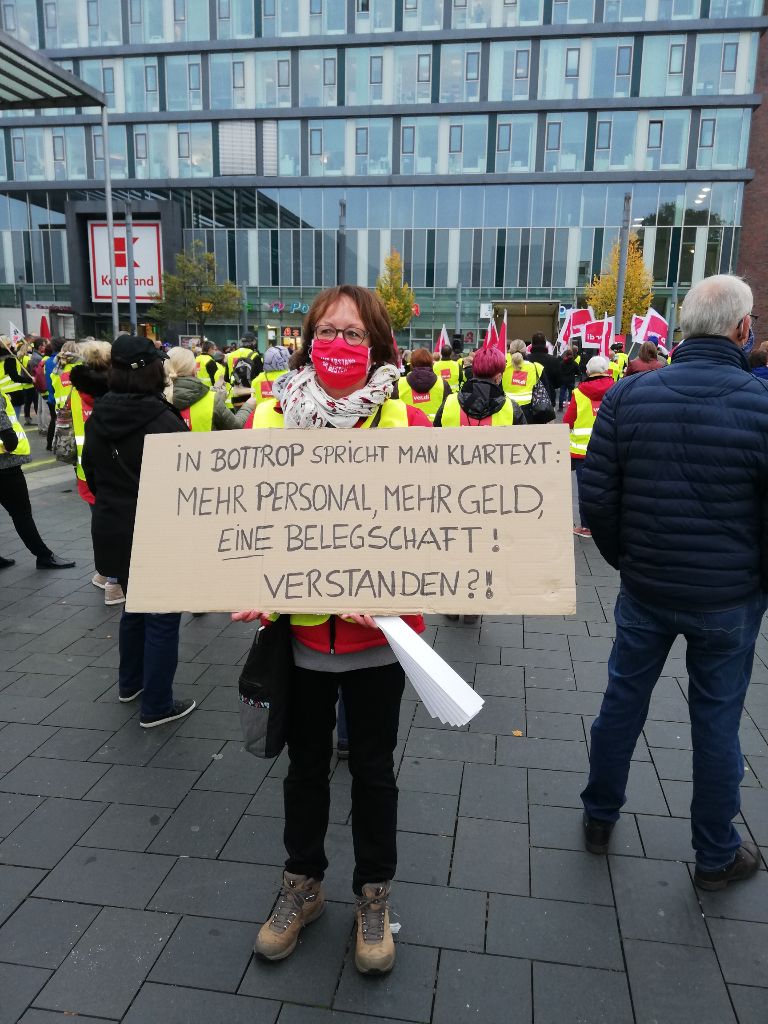 Kaufland
ver.di
ver.di
IN BOTTROP SPRICHT MAN KLARTEXT:
MEHR PERSONAL, MEHR GELD,
EINE BELEGSCHAFT!
VERSTANDEN?!